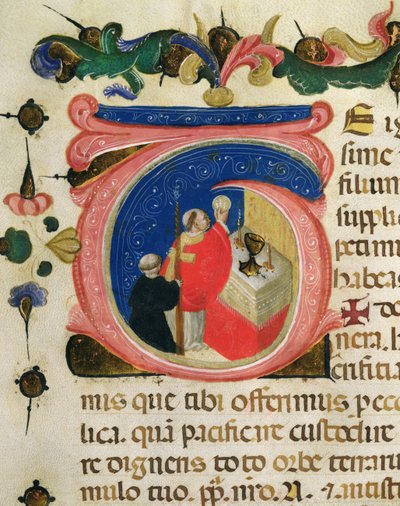 T E ig
sime
filium
suppli
petimu
habeas
✠ do
nera. h
crifitia
mis que tibi offerimus p ecc
lica. quā pacificare custodire
re digneris toto orbe terraru
mulo tuo. pp. nro. N. ⁊ antist